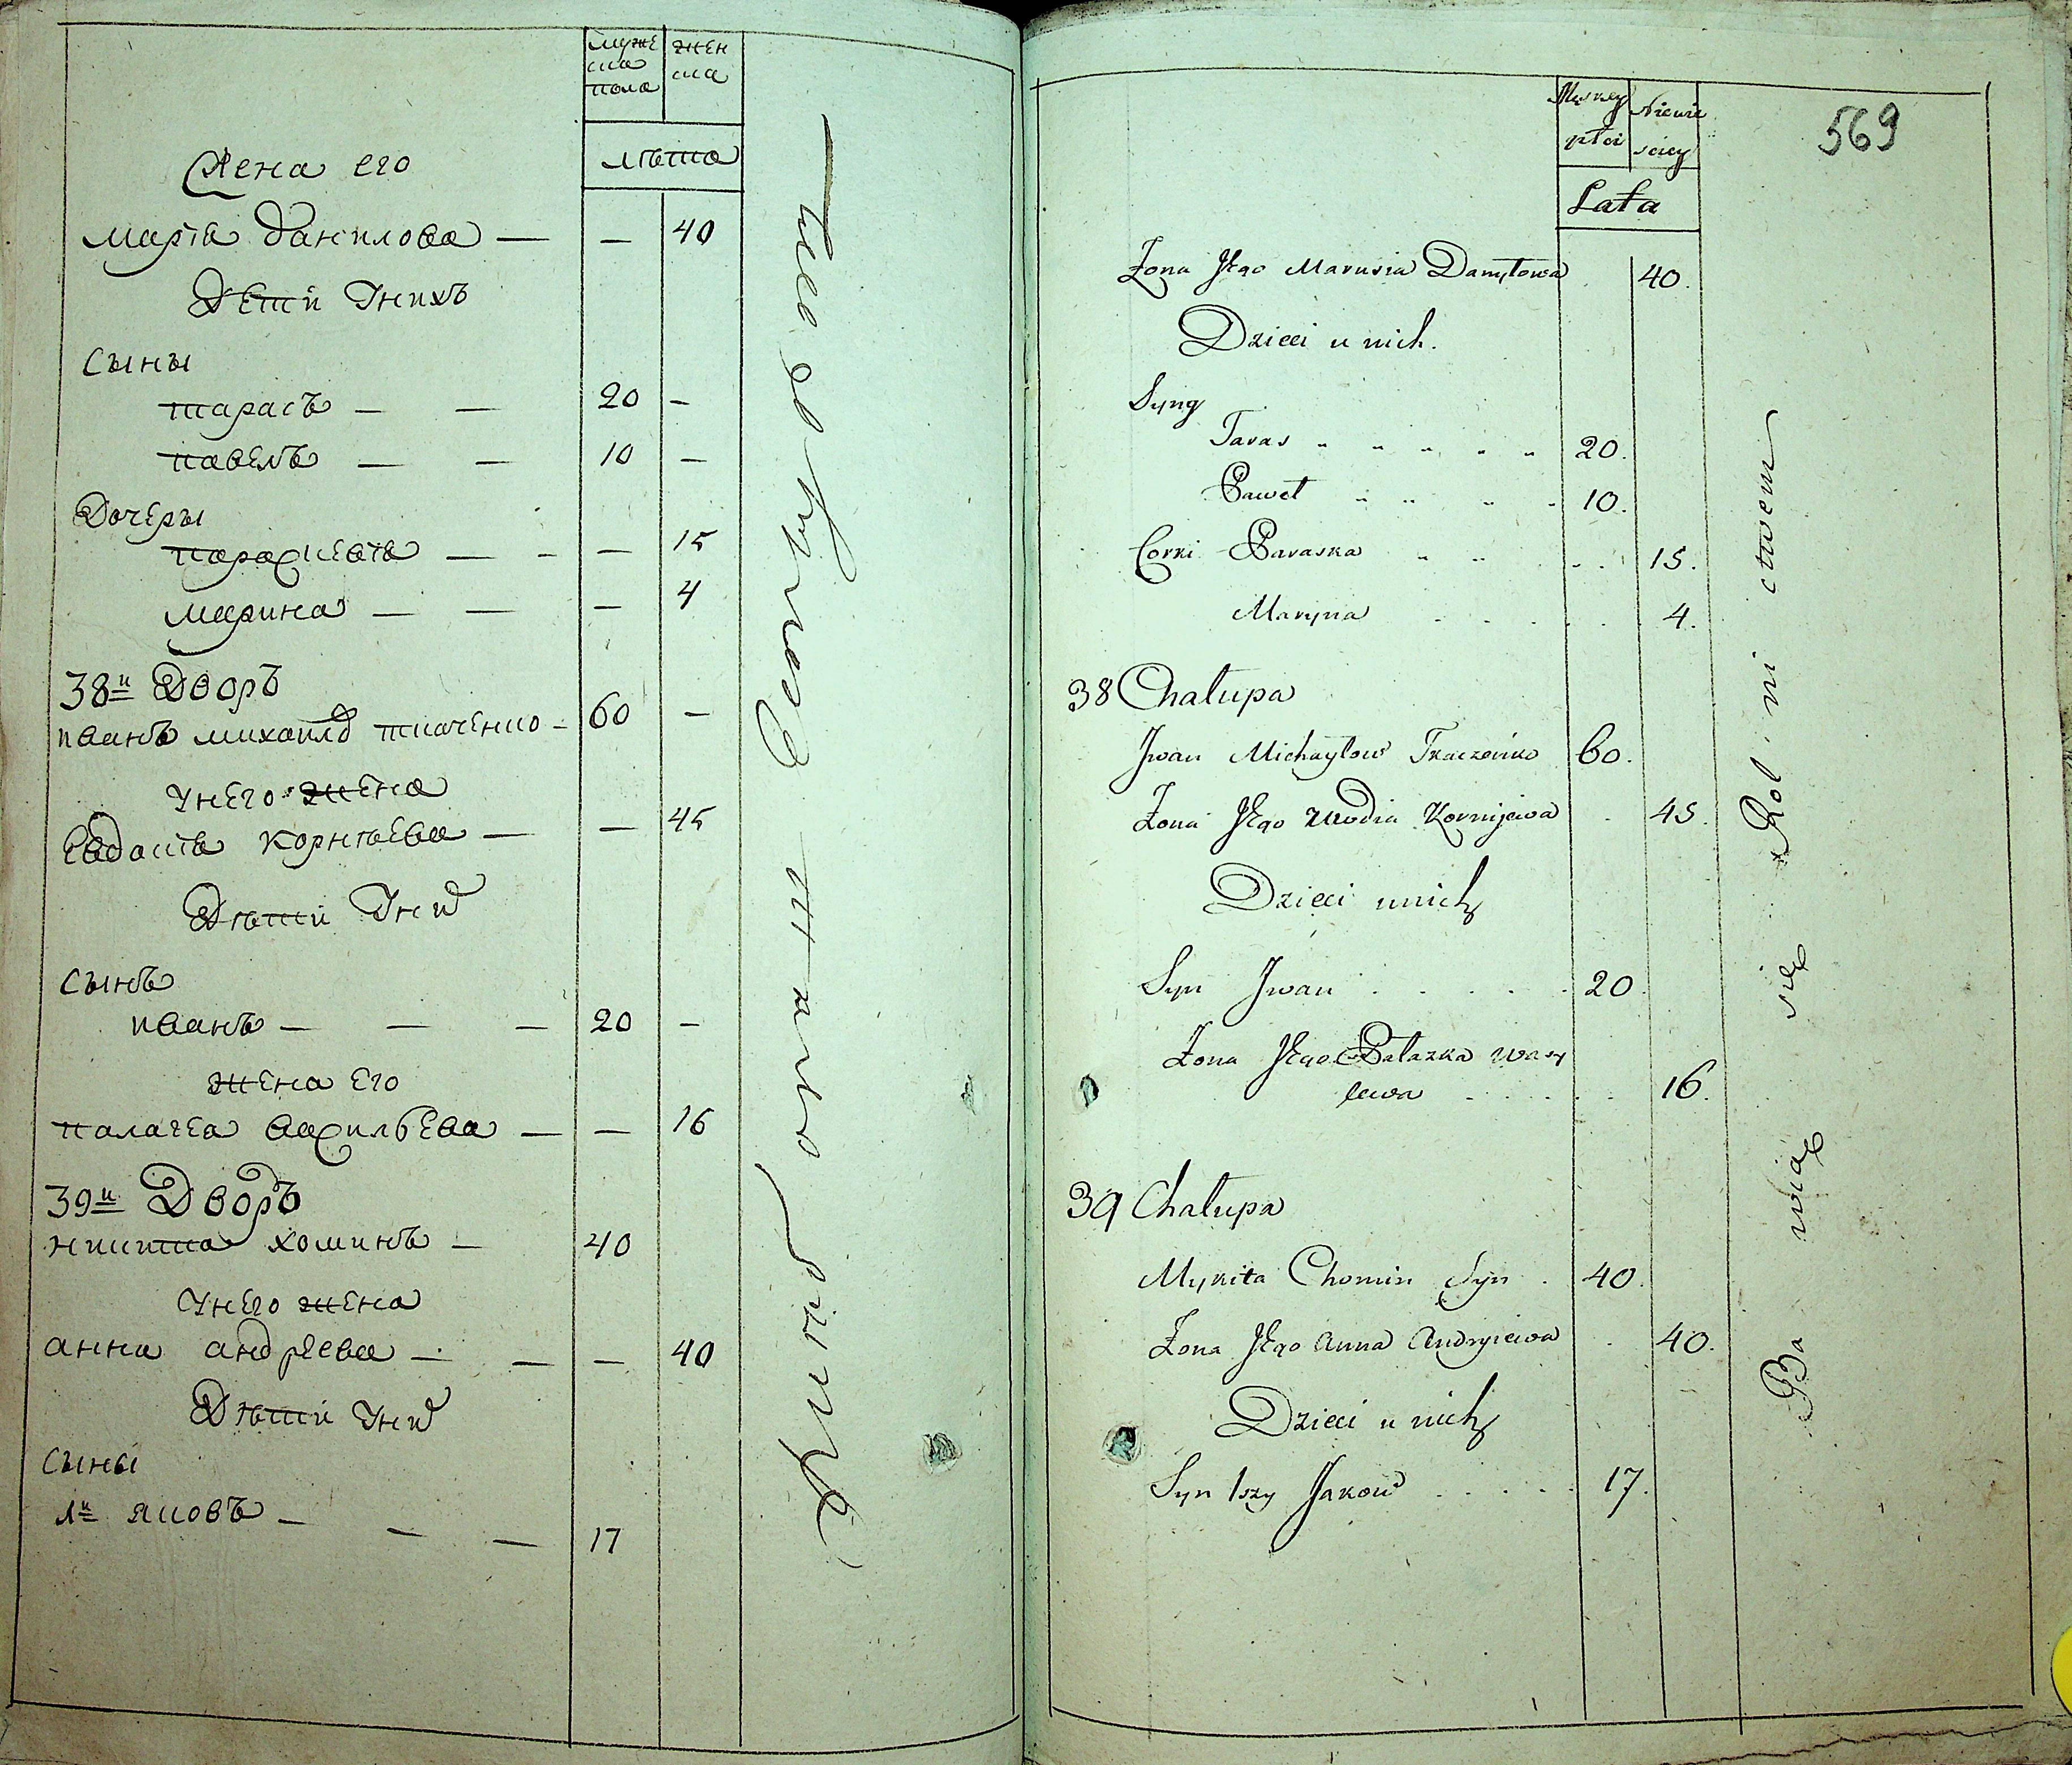 муже
ска
пола
жен
ска
лѣта
Жена его
марія данилова — — 40
Дети Унихъ
Сыны
тарасъ — — 20 —
павелъ — — 10 —
Дочеры
параскевія — - — 15
марина — — — 4
38й Дворъ
иванъ михайлов ткаченко - 60 —
Унего жена
Евдокія Корнѣева — — 45
Дѣти Уних
Сынъ
иванъ — — — 20 —
жена его
палагея Васильева — — 16
39й Дворъ
никита хоминъ — 40
Унего жена
анна андреева — — — 40
Дѣти Уних
Сыны
1й яковъ — — — 17
Живут
569
Męskey
płci
Niewie
sciey
Lata
Żona Jego Marusia Danyłowa 40.
Dzieci u nich.
Syny
Taras 20.
Paweł 10.
Corki Paraska 15.
Maryna 4.
38 Chałupa
Jwan Michayłow Tkaczeńko 60.
Żona Jego Uwodia Kornijewa 45.
Dzieci unich
Syn Jwan 20.
Żona Jego Pałazka Wasy
lewa 16.
39 Chałupa
Mykita Chomin Syn 40.
Żona Jego Anna Andryiewa 40.
Dzieci u nich
Syn 1szy Jakow 17.
Ba wią się Rol ni ctwem